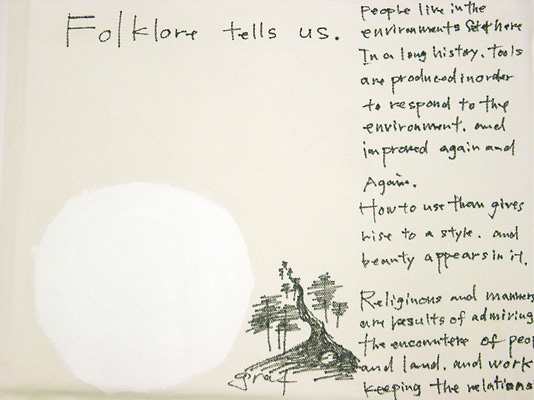 Folklore tells us.
People live in the
environments Set here
In a long history, tools
are produced in order
to respond to the
environment, and
improved again and
Again.
How to use them gives
rise to a style, and
beauty appears in it.
Religinous and manners
are results of admiring
the encountere of peop
and land, and work
keeping the relations
graf